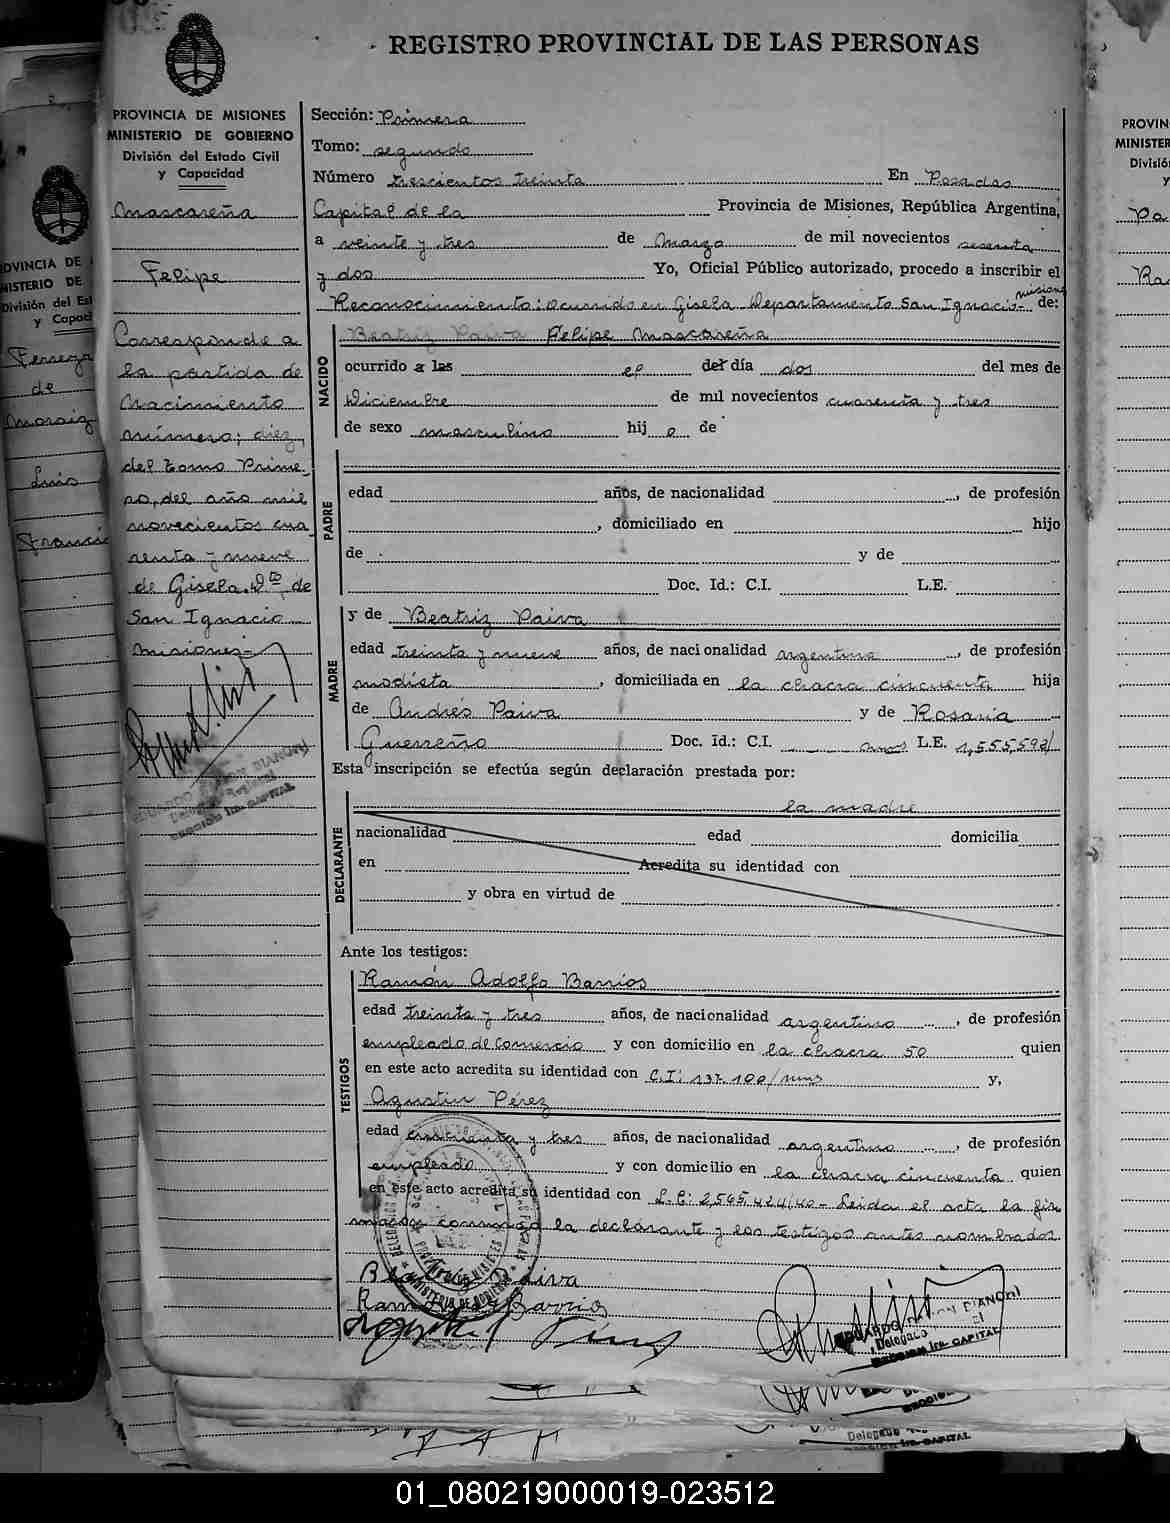 REGISTRO PROVINCIAL DE LAS PERSONAS
PROVINCIA DE MISIONES
MINISTERIO DE GOBIERNO
División del Estado Civil
y Capacidad
Mascareña
Felipe
Corresponde a
la partida de
Nacimiento
número; diez,
del tomo Prime-
ro, del año mil
novecientos cua-
renta y nueve
de Gisela. Dto. de
San Ignacio -
Misiones -
Sección: Primera
Tomo: segundo
Número trescientos treinta En Posadas
Capital de la Provincia de Misiones, República Argentina,
a veinte y tres de Marzo de mil novecientos sesenta
y dos Yo, Oficial Público autorizado, procedo a inscribir el
Reconocimiento: ocurrido en Gisela Departamento San Ignacio- Misiones de:
NACIDO
Beatriz Paiva Felipe Mascareña
ocurrido a las el del día dos del mes de
Diciembre de mil novecientos cuarenta y tres
de sexo masculino hij o de
PADRE
edad años, de nacionalidad , de profesión
, domiciliado en hijo
de y de
Doc. Id.: C.I. L.E.
MADRE
y de Beatriz Paiva
edad treinta y nueve años, de nacionalidad argentina , de profesión
modista , domiciliada en la chacra cincuenta hija
de Andrés Paiva y de Rosaria
Guerreño Doc. Id.: C.I. L.E. 1,555,592/
Esta inscripción se efectúa según declaración prestada por:
DECLARANTE
la madre
nacionalidad edad domicilia
en Acredita su identidad con
y obra en virtud de
Ante los testigos:
TESTIGOS
Ramón Adolfo Barrios
edad treinta y tres años, de nacionalidad argentino , de profesión
empleado de comercio y con domicilio en la chacra 50 quien
en este acto acredita su identidad con C.I: 137.100/mns y,
Agustin Pérez
edad cincuenta y tres años, de nacionalidad argentino , de profesión
empleado y con domicilio en la chacra cincuenta quien
en este acto acredita su identidad con L.E: 2,565.424/40 - Leida el acta la fir
man conmigo la declarante y los testigos antes nombrados
Beatriz Paiva
Ramon A Barrios
EDUARDO RAMON BIANCHI
Delegado
SECCION 1ra. CAPITAL
01_080219000019-023512